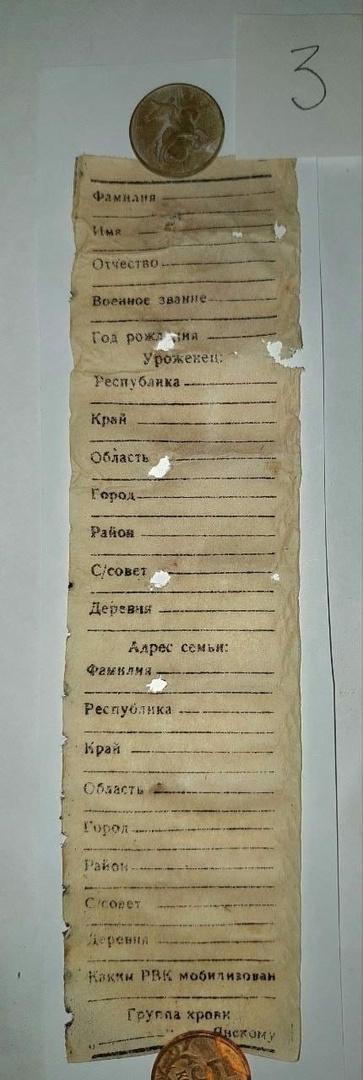 3
Фамилия
Имя
Отчество
Военное звание
Год рождения
Уроженец:
Республика
Край
Область
Город
Район
С/совет
Деревня
Адрес семьи:
Фамилия
Республика
Край
Область
Город
Район
С/совет
Деревня
Каким РВК мобилизован
Группа крови
„ “ Янскому